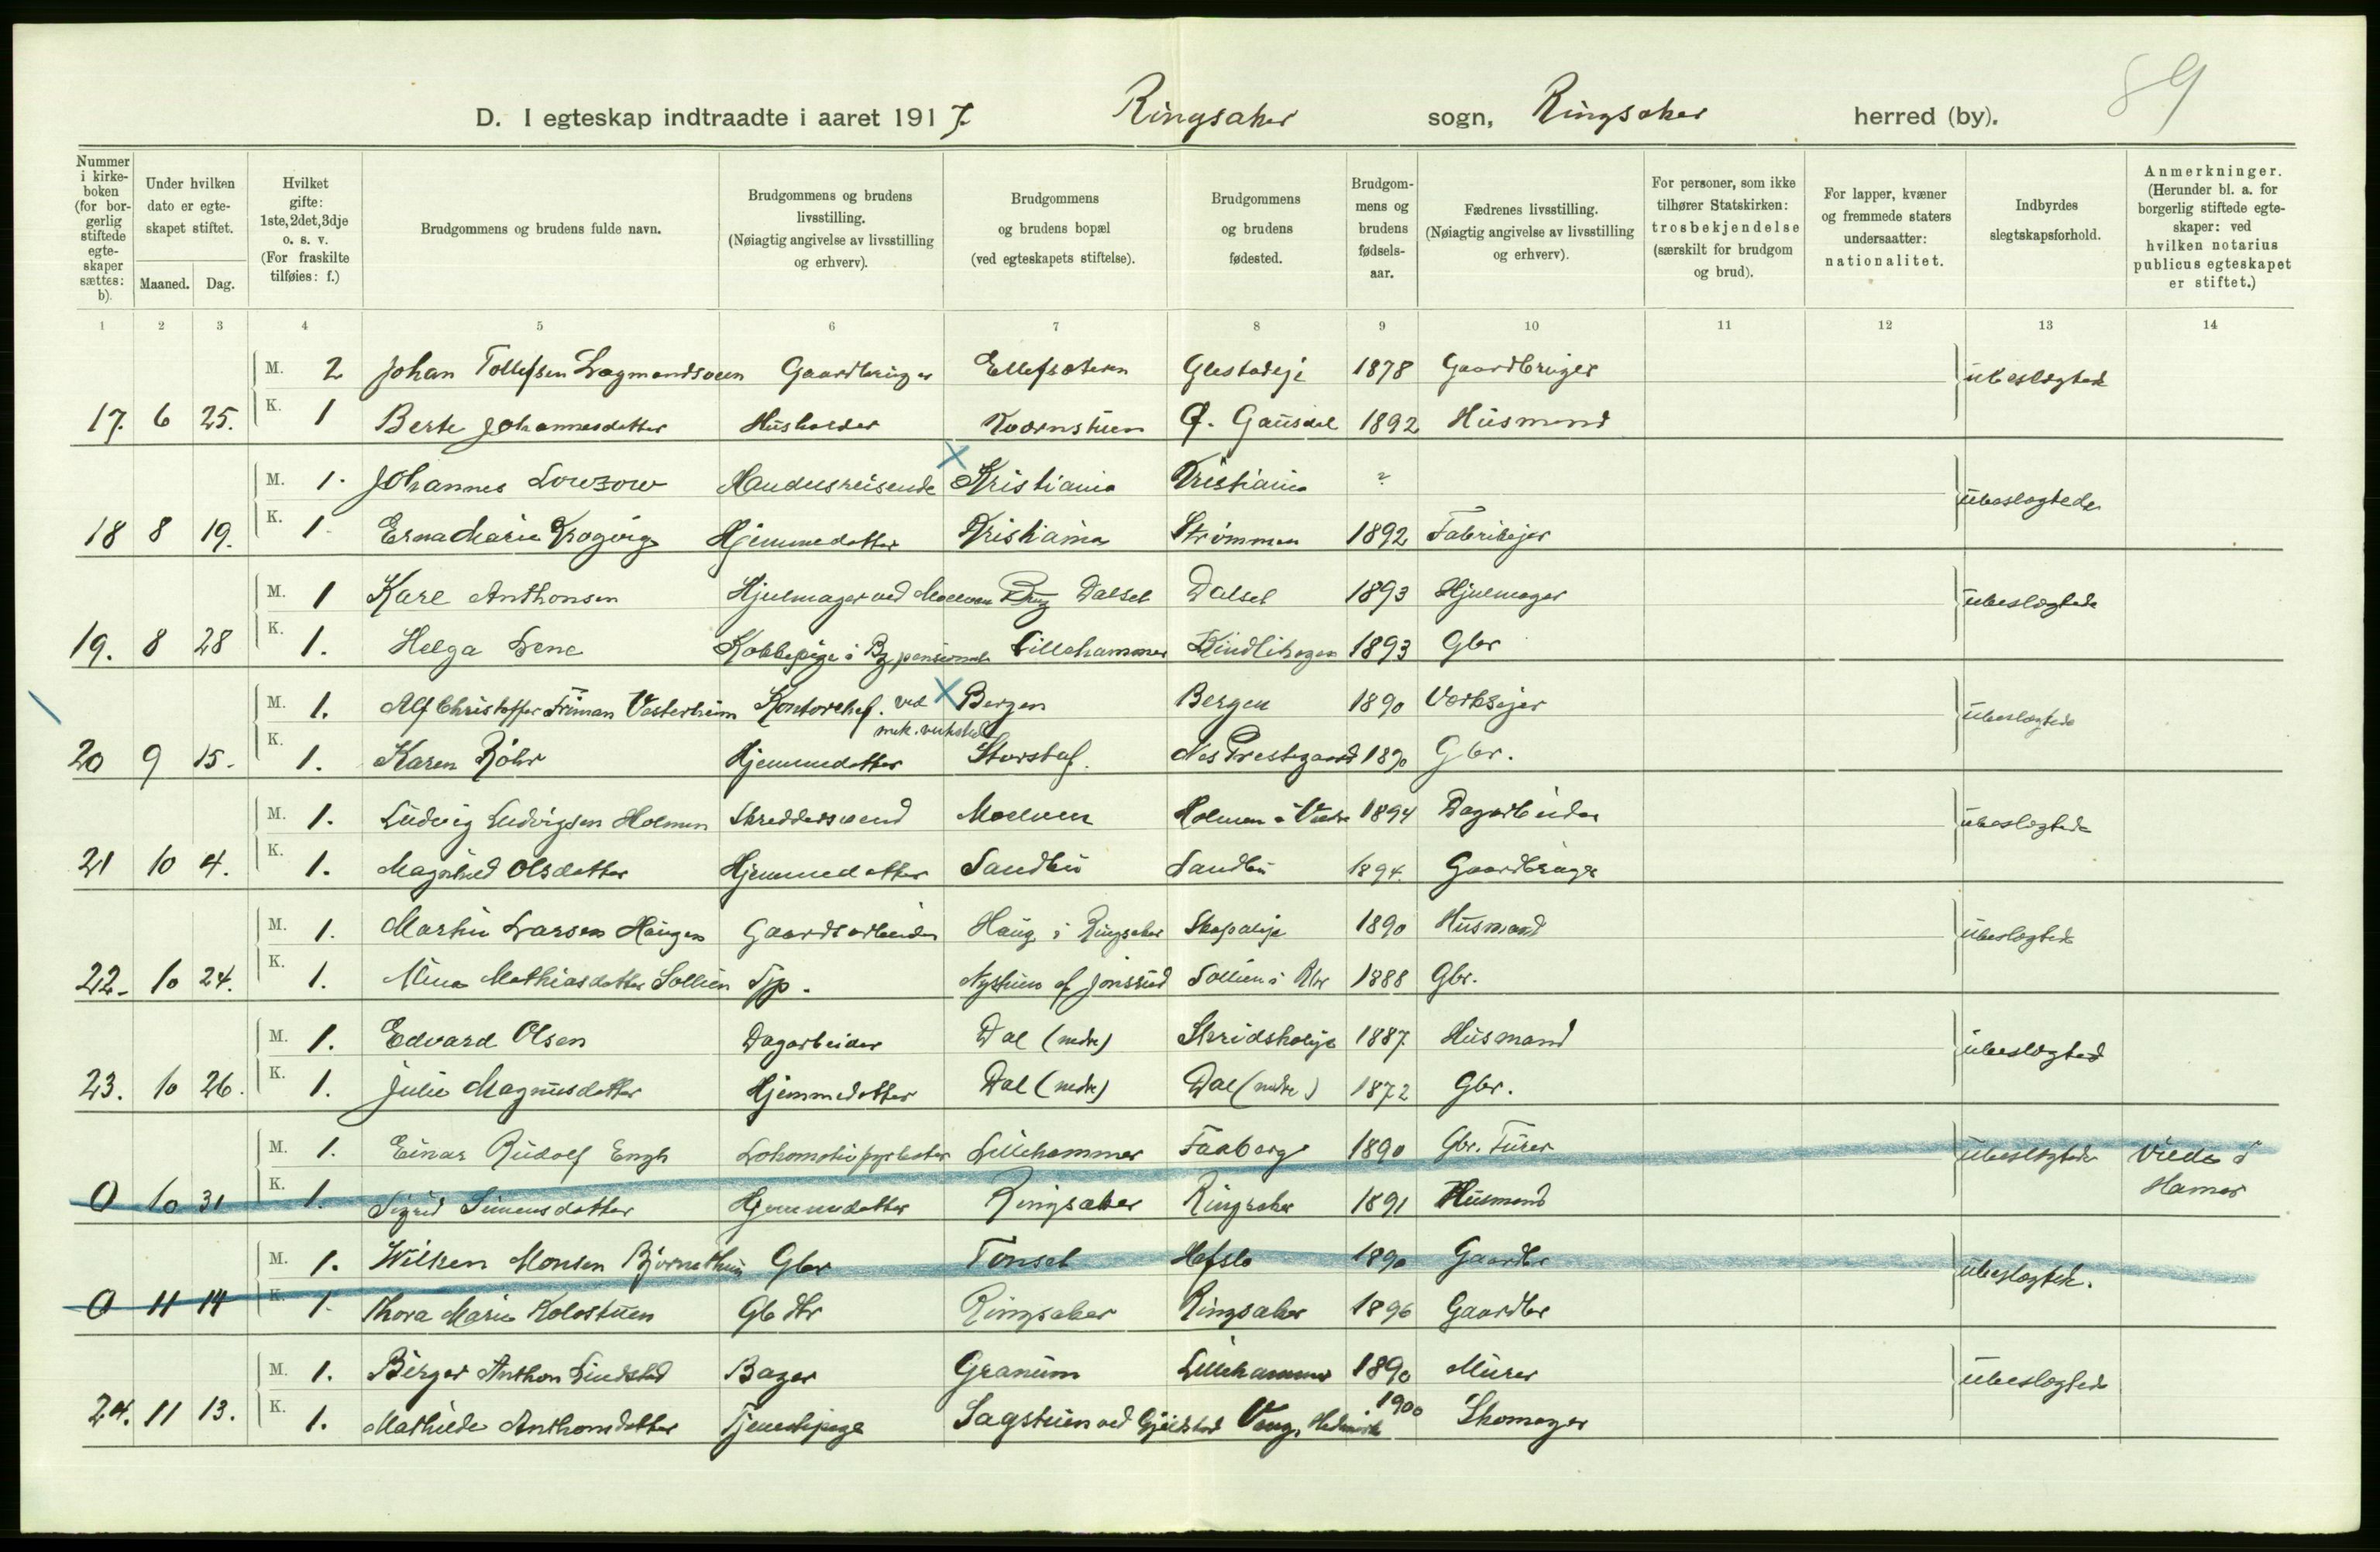 89
D. I egteskap indtraadte i aaret 1917. Ringsaker sogn, Ringsaker herred (by).
Nummer i kirkeboken (for borgerlig stiftede egteskaper sættes: b).
Under hvilken dato er egteskapet stiftet.
Maaned. Dag.
Hvilket gifte: 1ste, 2det, 3dje o. s. v. (For fraskilte tilføies: f.)
Brudgommens og brudens fulde navn.
Brudgommens og brudens livsstilling. (Nøiagtig angivelse av livsstilling og erhverv).
Brudgommens og brudens bopæl (ved egteskapets stiftelse).
Brudgommens og brudens fødested.
Brudgommens og brudens fødselsaar.
Fædrenes livsstilling. (Nøiagtig angivelse av livsstilling og erhverv).
For personer, som ikke tilhører Statskirken: trosbekjendelse (særskilt for brudgom og brud).
For lapper, kvæner og fremmede staters undersaatter: nationalitet.
Indbyrdes slegtskapsforhold.
Anmerkninger. (Herunder bl. a. for borgerlig stiftede egteskaper: ved hvilken notarius publicus egteskapet er stiftet.)
1 2 3 4 5 6 7 8 9 10 11 12 13 14
M. 2 Johan Tollefsen Lagmandsveen Gaardbruger Glestadeje 1878 Gaardbruger ubeslegtede
17. 6 25. K. 1 Berte Johannesdatter Husholder Kvernstuen Ø. Gausdal 1892 Husmand
M. 1. Johannes Lowzow Handelsreisende Kristiania Kristiania ? ubeslegtede
18 8 19. K. 1 Erna Marie Krogvig Hjemmedatter Kristiania Strømmen 1892 Fabrikejer
M. 1 Karl Anthonsen Hjulmager ved Moelven Brug Dalset Dalset 1893 Hjulmager ubeslegtede
19. 8 28 K. 1. Helga Lene Kokkepige i Lillehammer 1893 Gbr
M. 1. Alf Christoffer Friman Vesterheim Kontorchef. ved mek. verksted Bergen Bergen 1890 Verksejer ubeslegtede
20 9 15. K. 1. Karen Röhr Hjemmedatter Storstad. Nes Prestegaard 1890 Gbr.
M. 1. Ludvig Ludvigsen Holmen Skreddersvend Moelven Holmen i 1894 Dagarbeider ubeslegtede
21 10 4. K. 1. Magnhild Olsdatter Hjemmedatter Sandbu Sandbu 1894. Gaardbruger
M. 1. Martin Larsen Haugen Gaardsarbeider Haug i Ringsaker 1890 Husmand ubeslegtede
22. 10 24. K. 1. Mina Mathiasdatter Sollien Tjp. Nystuen af Jonsrud Sollien i Rbr 1888 Gbr.
M. 1. Edvard Olsen Dagarbeider Dal (nedre) Skridsholeje 1887. Husmand ubeslegted
23. 10 26. K. 1. Julie Magnusdatter Hjemmedatter Dal (nedre) Dal (nedre) 1872 Gbr.
M. 1. Einar Rudolf Engh Lokomotivfyrbøter Lillehammer Faaberg 1890 Gbr. Furer ubeslegtede Viede i
0 10 31 K. 1. Sigrid Simensdatter Hjemmedatter Ringsaker Ringsaker 1891 Husmand Hamar
M. 1. Wilken Monsen Bjørnethun Gbr Tønset Hafslo 1890 Gaardbr ubeslegtede.
0 11 14 K. 1. Thora Marie Kolostuen Gbdtr Ringsaker Ringsaker 1896 Gaardbr
M. 1. Birger Anthon Lindstad Bager Granum Lillehammer 1890 Murer ubeslegtede
24. 11 13. K. 1. Mathilde Anthonsdatter Tjenestepige Sagstuen ved Gjeldstad Vang, Hedmark 1900 Skomager